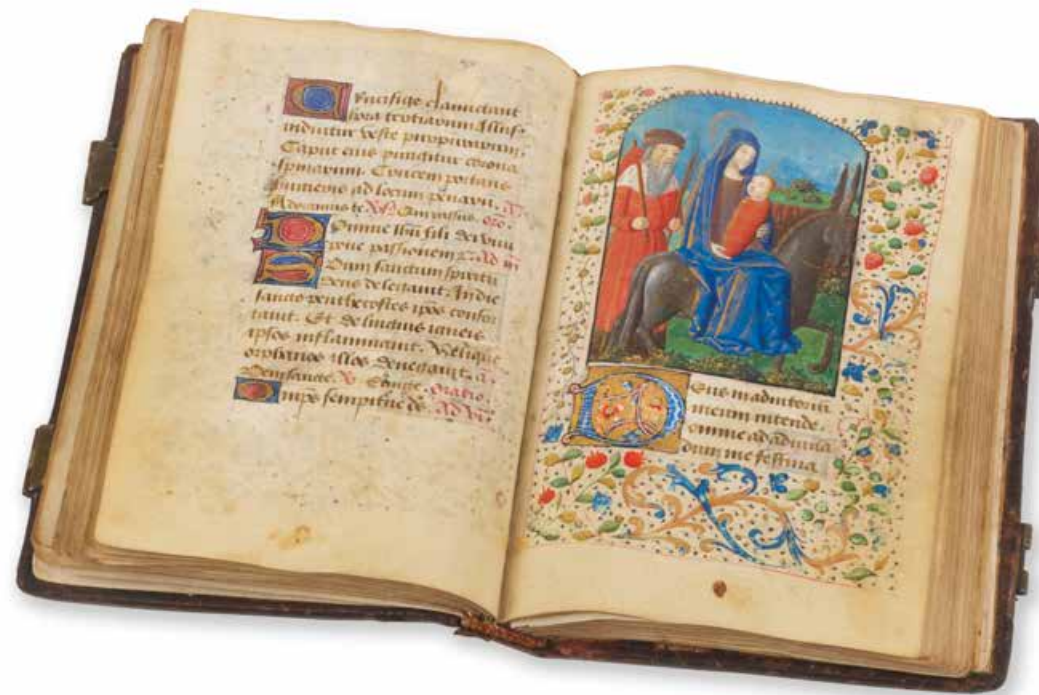 Crucifige clamitant
hora terciarum Illus
induitur veste purpurarum.
Caput eius pungitur corona
spinarum. Crucem portans
humeris ad locum penarum.
Adoramus te.
Domine fili dei vivi
pone passionem
Suum sanctum spiritu
Deus delegavit. In die
sancto penthecostes apos confor
tavit. Et de linguis igneis
ipsos inflammavit. Relique
orphanos illos denegavit. a
Veni sancte. Oratio.
Omps sempitne ds Ad
Deus in adiutoriu
meum intende.
Domine ad adiuva
dum me festina